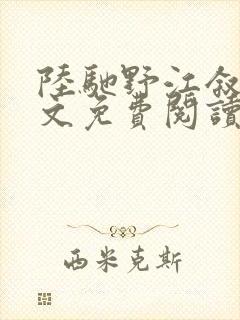 陸馳野江叙
文免費閱讀
西米克斯